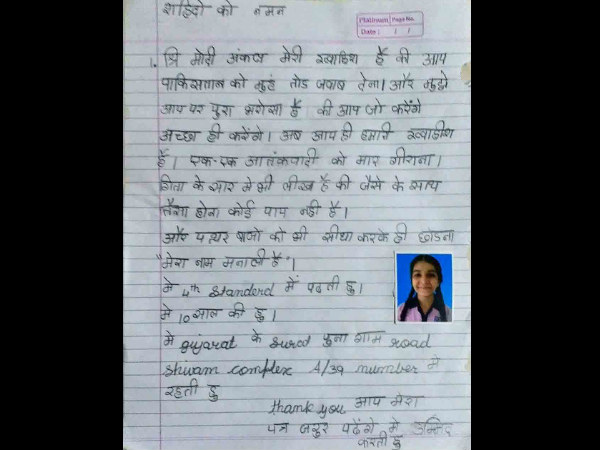 शहिदो को नमन
Platinum Page No.
Date : / /
1. श्रि मोदी अंकल मेरी ख्वाहिश है की आप
पाकिसतान को मुहं तोड जवाब देना। और मुझे
आप पर पुरा भरोसा है की आप जो करेंगे
अच्छा ही करेंगे। अब आप ही हमारी ख्वाहीश
है। एक-एक आतंकवादी को मार गीराना।
गिता के सार मे भी लीखा है की जैसे के साथ
तैसा होना कोई पाप नही है।
और पत्थर बाजो को भी सीधा करके ही छोडना
"मेरा नाम मनाली है"।
मे 4th standerd में पढती हु।
मे 10 साल की हु।
मे gujarat के surat पुना गाम road
shivam complex A/39 number मे
रहती हु
thank you आप मेरा
पत्र जरुर पढेंगे मे उम्मिद
करती हु